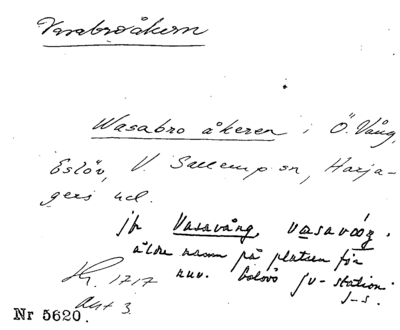 Vasabroåkern
Wasabro åkeren i Ö. Vång,
Eslöv, V. Sallerup sn, Harja-
gers hd.
jfr Vasavång, vasavåŋ,
äldre namn på platsen för
nuv. Eslövs jv-station.
J-s.
Hz. 1717
akt 3.
Nr 5620.